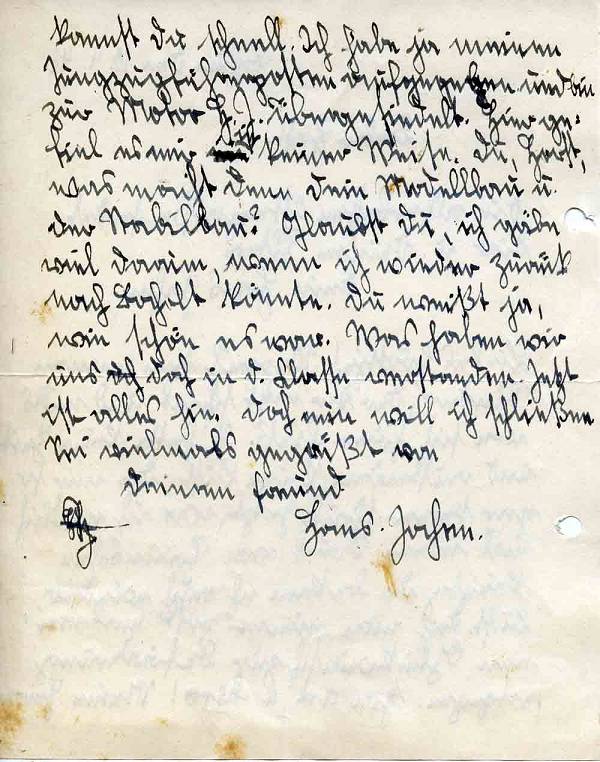 kannst du schnell. Ich habe ja meinen
Jungzugführerposten aufgegeben und bin
zur Motor H.J. übergesiedelt. Hier ge-
fiel es mir in keiner Weise. Du, Horst,
was macht denn dein Modellbau u.
der Stabilbau? Glaubst du, ich gäbe
viel darum, wenn ich wieder zurück
nach Bocholt könnte. Du weißt ja,
wie schön es war. Was haben wir
uns doch in d. Klasse verstanden. Jetzt
ist alles hin. Doch nun will ich schließen
Sei vielmals gegrüßt von
deinem Freund
Hans-Jochem.